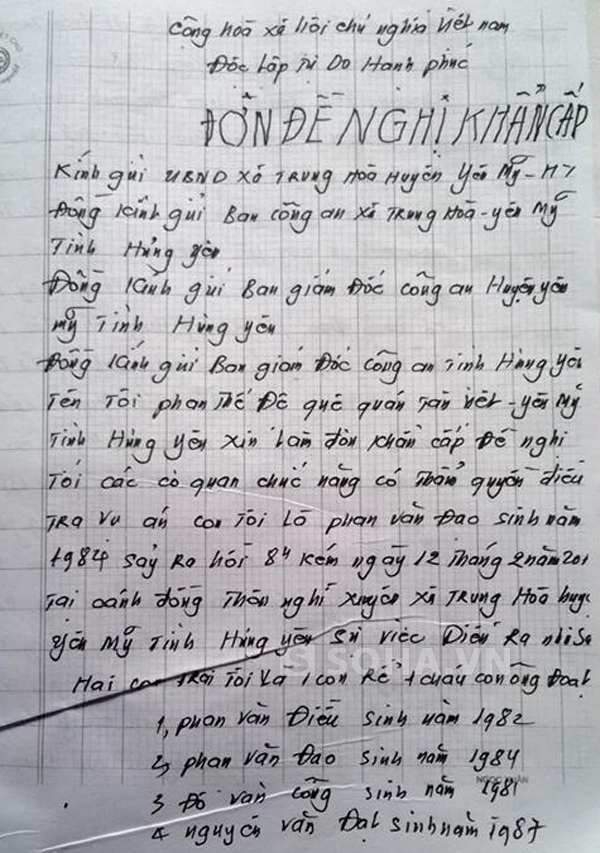 Công hoà xã hôi chủ nghĩa Việt nam
Độc lập Tự Do Hạnh phúc
ĐƠN ĐỀ NGHỊ KHẨN CẤP
Kính gửi UBND Xã TRung Hoà Huyện Yên Mỹ - HY
Đồng kính gửi Ban công an xã TRung Hoà - yên Mỹ
Tỉnh Hưng yên
Đồng kính gửi Ban giám Đốc công an Huyện yên
mỹ Tỉnh Hưng yên
Đồng kính gửi Ban giám Đốc công an Tỉnh Hưng yên
Tên Tôi phan Thế Đê quê quán Tân Việt - yên Mỹ
Tỉnh Hưng yên xin làm đơn khẩn cấp Đề nghị
Tới các cơ quan chức năng có Thẩm quyền điều
TRa vụ án con Tôi Là phan văn Đao sinh năm
1984 Sảy Ra hồi 8H kém ngày 12 Tháng 2 năm 201
Tại cánh đồng Thôn nghĩ xuyên xã TRung Hoà huyệ
yên Mỹ Tỉnh Hưng yên Sự việc Diễn Ra như Sa
Hai con TRai Tôi và 1 con Rể 1 cháu con ông Đoạt
1, phan văn Điều sinh năm 1982
2, phan văn Đao sinh năm 1984
3 Đỗ văn công sinh năm 1981
4 nguyễn văn Đạt sinh năm 1987
SOHA.VN